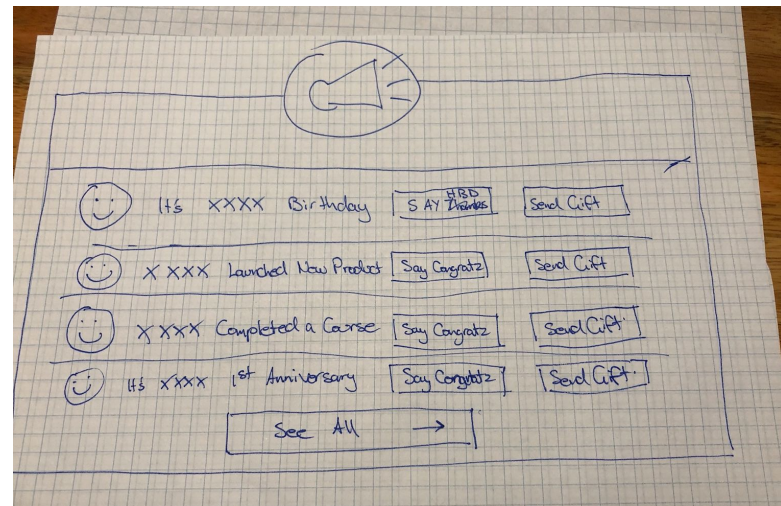 It's XXXX Birthday SAY HBD Send Gift
XXXX Launched New Product Say Congratz Send Gift
XXXX Completed a Course Say Congratz Send Gift.
It's XXXX 1st Anniversary Say Congratz Send Gift.
See All →